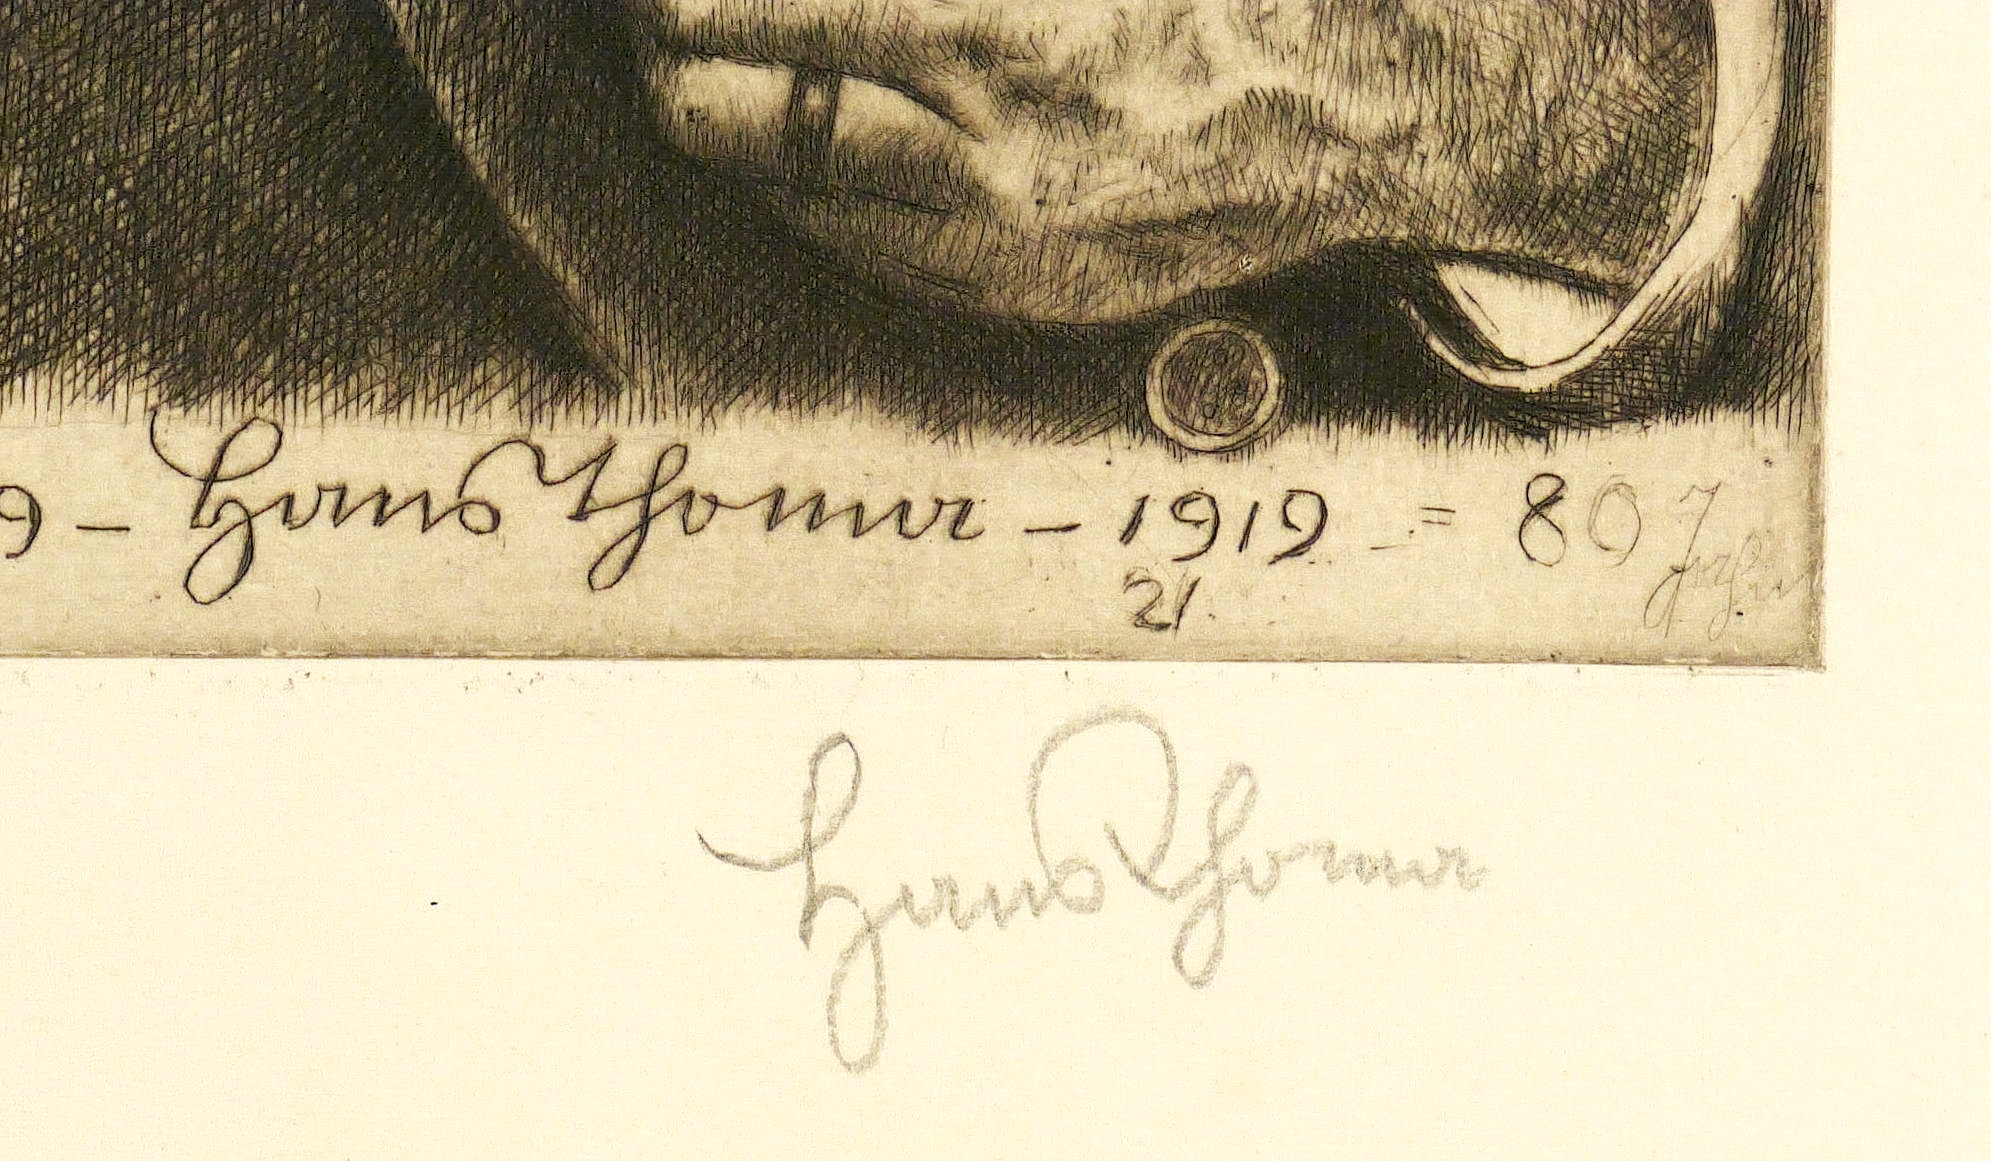 9 – Hans Thoma – 1919 = 80 J
21.
Hans Thoma